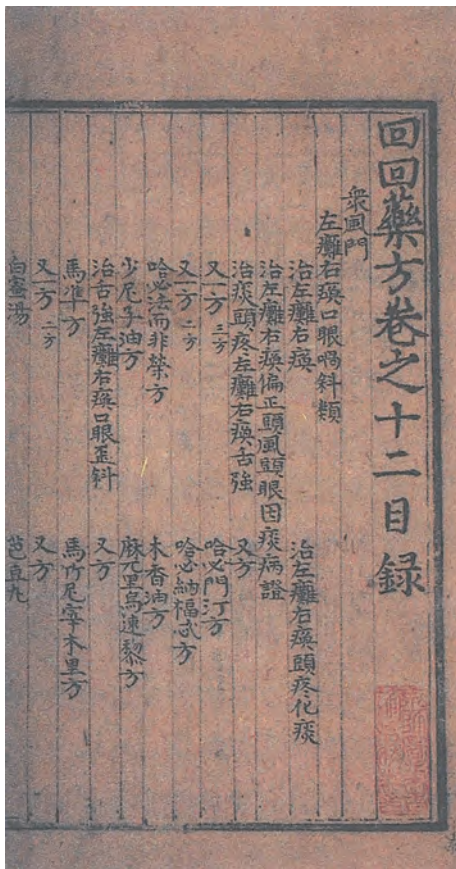 回回藥方卷之十二目録
衆風門
左癱右瘓口眼喎斜類
治左癱右瘓 治左癱右瘓頭疼化痰
治左癱右瘓偏正頭風頭眼因痰病證
治痰頭疼左癱右瘓舌強 又方
又一方 三方 哈必門汀方
又一方 二方 哈必納福忒方
哈必法而非榮方 木香油方
少尼子油方 麻兀里烏速黎方
治舌強左癱右瘓口眼歪斜 又方
馬准方 馬竹尼宰木里方
又一方 二方 又方
白蜜湯 芭豆丸